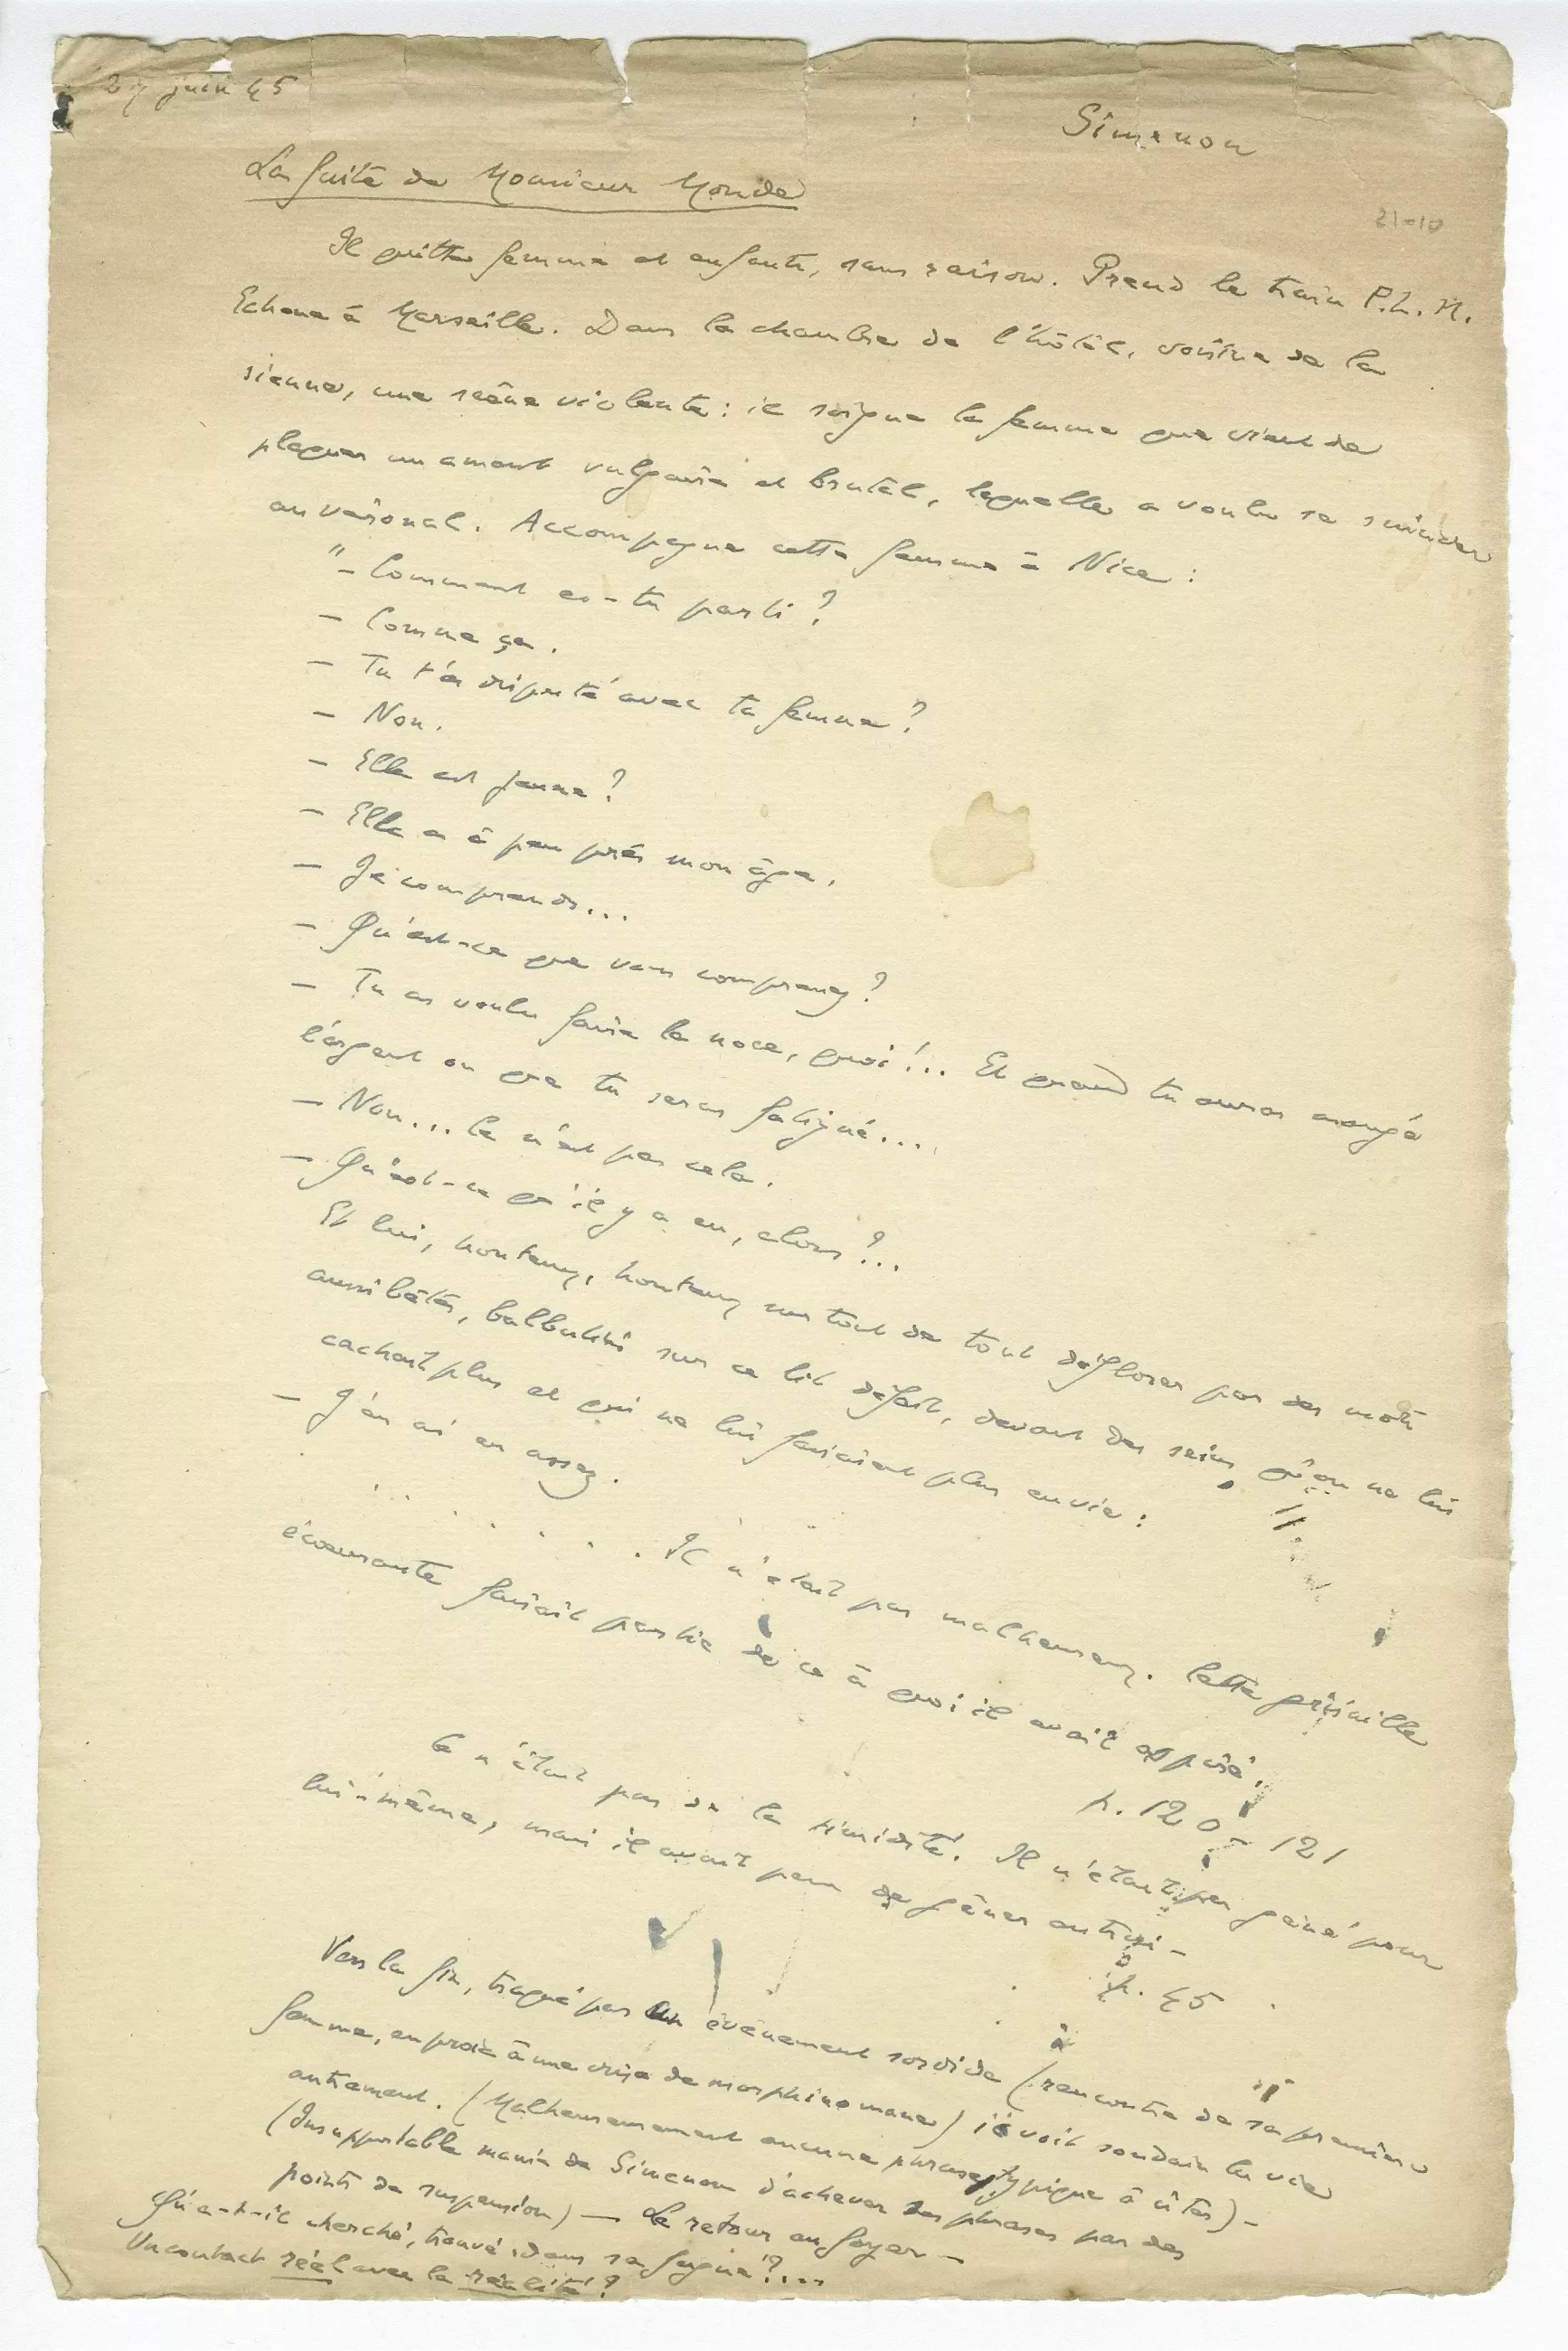 27 juin 45
Simenon
La fuite de Monsieur Monde
21-10
Il quitte femme et enfants, sans raison. Prend le train P.L.M.
Echoue à Marseille. Dans la chambre de l'hôtel, voisine de la
sienne, une scène violente : il soigne la femme que vient de
plaquer un amant vulgaire et brutal, laquelle a voulu se suicider
au véronal. Accompagne cette femme à Nice :
"– Comment es-tu parti ?
– Comme ça.
– Tu t'es disputé avec ta femme ?
– Non.
– Elle est jeune ?
– Elle a à peu près mon âge.
– Je comprends...
– Qu'est-ce que vous comprenez ?
– Tu as voulu faire la noce, quoi !... Et quand tu auras mangé
l'argent ou que tu seras fatigué...
– Non... Ce n'est pas cela.
– Qu'est-ce qu'il y a eu, alors ?...
Et lui, honteux, honteux surtout de tout déflorer par des mots
aussi bêtes, balbutiait sur ce lit défait, devant des seins qu'on ne lui
cachait plus et qui ne lui faisaient plus envie :
– J'en ai eu assez.
. . . . . . . Il n'était pas malheureux. Cette grisaille
écœurante faisait partie de ce à quoi il avait aspiré.
p. 120 - 121
Ce n'était pas de la timidité. Il n'était pas gêné pour
lui-même, mais il avait peur de gêner autrui –
p. 45
Vers la fin, traqué par un événement sordide (rencontre de sa première
femme, en proie à une crise de morphinomane) il voit soudain la vie
autrement. (Malheureusement aucune phrase typique à citer) –
(Insupportable manie de Simenon d'achever ses phrases par des
points de suspension) – Le retour au foyer –
Qu'a-t-il cherché, trouvé, dans sa fugue ?...
Un contact réel avec la réalité ?